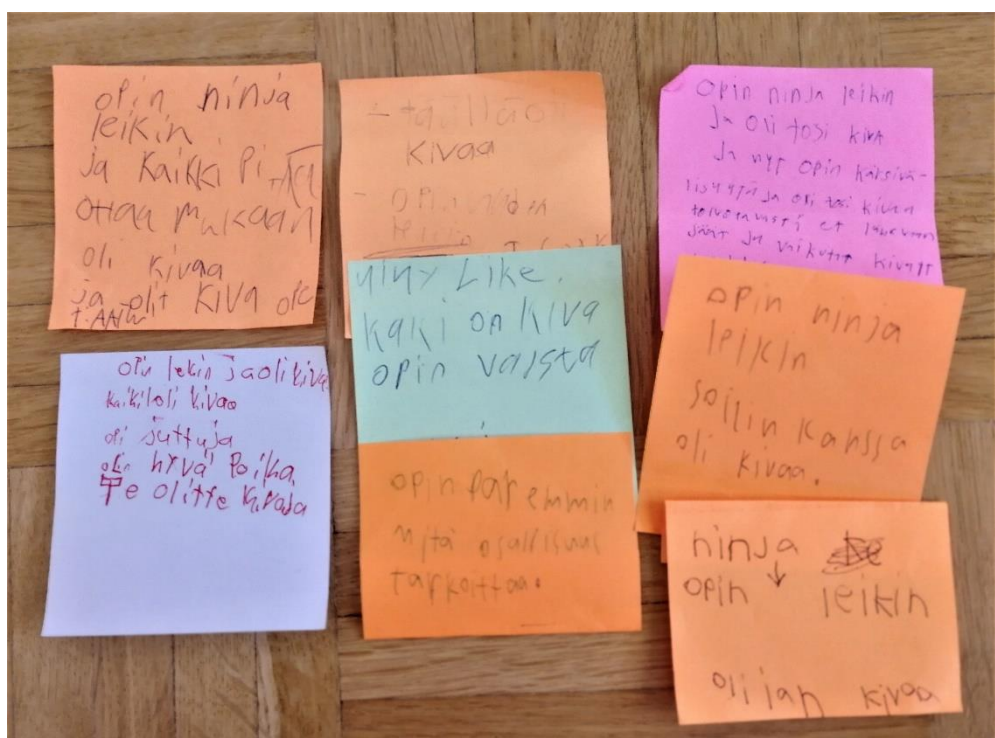 opin ninja
leikin
ja kaikki pitää
ottaa mukaan
oli kivaa
ja olit kiva
opin lekin jaoli kiva
kaikiloli kivaa
oli juttuja
olin hyvä poika
Te olitte kivoja
- täälläon
kivaa
- opin
Like.
kaki on kiva
opin
opin paremmin
mitä osallisuus
tarkoittaa.
opin ninja leikin
Ja oli tosi kiva
Ja nyt opin kärsivä-
lisyyttä ja oli tosi kivaa
et
jäät Ja
opin ninja
leikin
soilin kanssa
oli kivaa.
ninja
opin ↓ leikin
oli ian kivaa